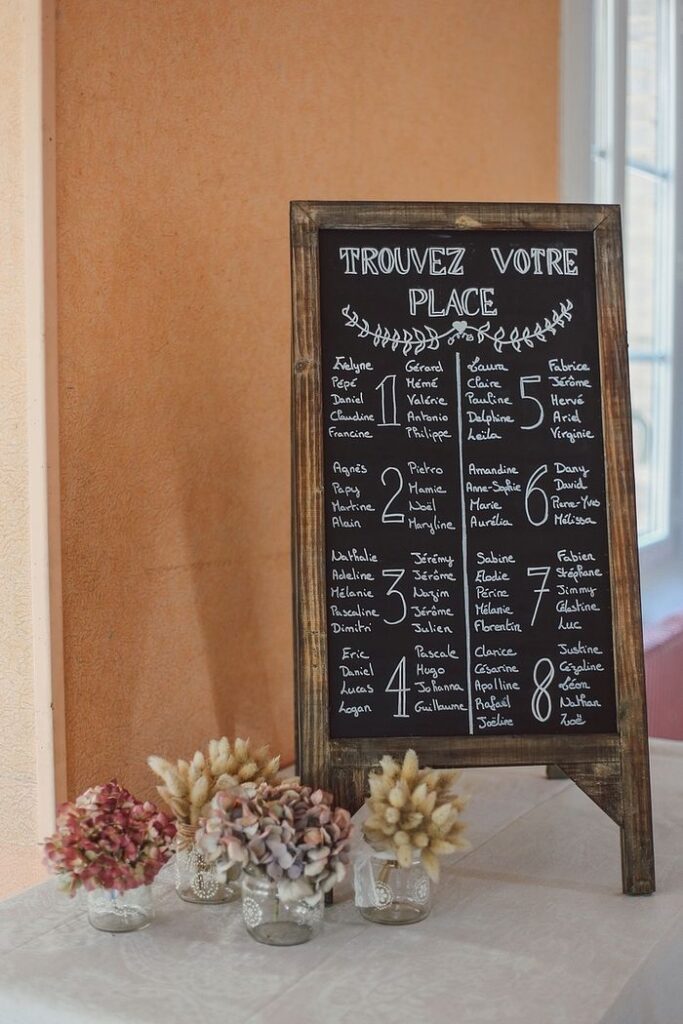 TROUVEZ VOTRE
PLACE
Evelyne
Pépé
Daniel
Claudine
Francine
1
Gérard
Mémé
Valérie
Antonio
Philippe
Laura
Claire
Pauline
Delphine
Leïla
5
Fabrice
Jérôme
Hervé
Ariel
Virginie
Agnés
Papy
Martine
Alain
2
Pietro
Mamie
Noël
Maryline
Amandine
Anne-Sophie
Marie
Aurélia
6
Dany
David
Pierre-Yves
Mélissa
Nathalie
Adeline
Mélanie
Pascaline
Dimitri
3
Jérémy
Jérôme
Nazim
Jérôme
Julien
Sabine
Elodie
Périne
Mélanie
Florentin
7
Fabien
Stéphane
Jimmy
Célestine
Luc
Eric
Daniel
Lucas
Logan
4
Pascale
Hugo
Johanna
Guillaume
Clarice
Césarine
Apolline
Rafaël
Joéline
8
Justine
Cézaline
Léon
Nathan
Zoë